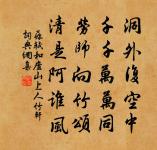 洞外復空中
千千萬萬同
勞師向竹頌
清是阿誰風
蘇軾和廬山上人竹軒
詞典網集